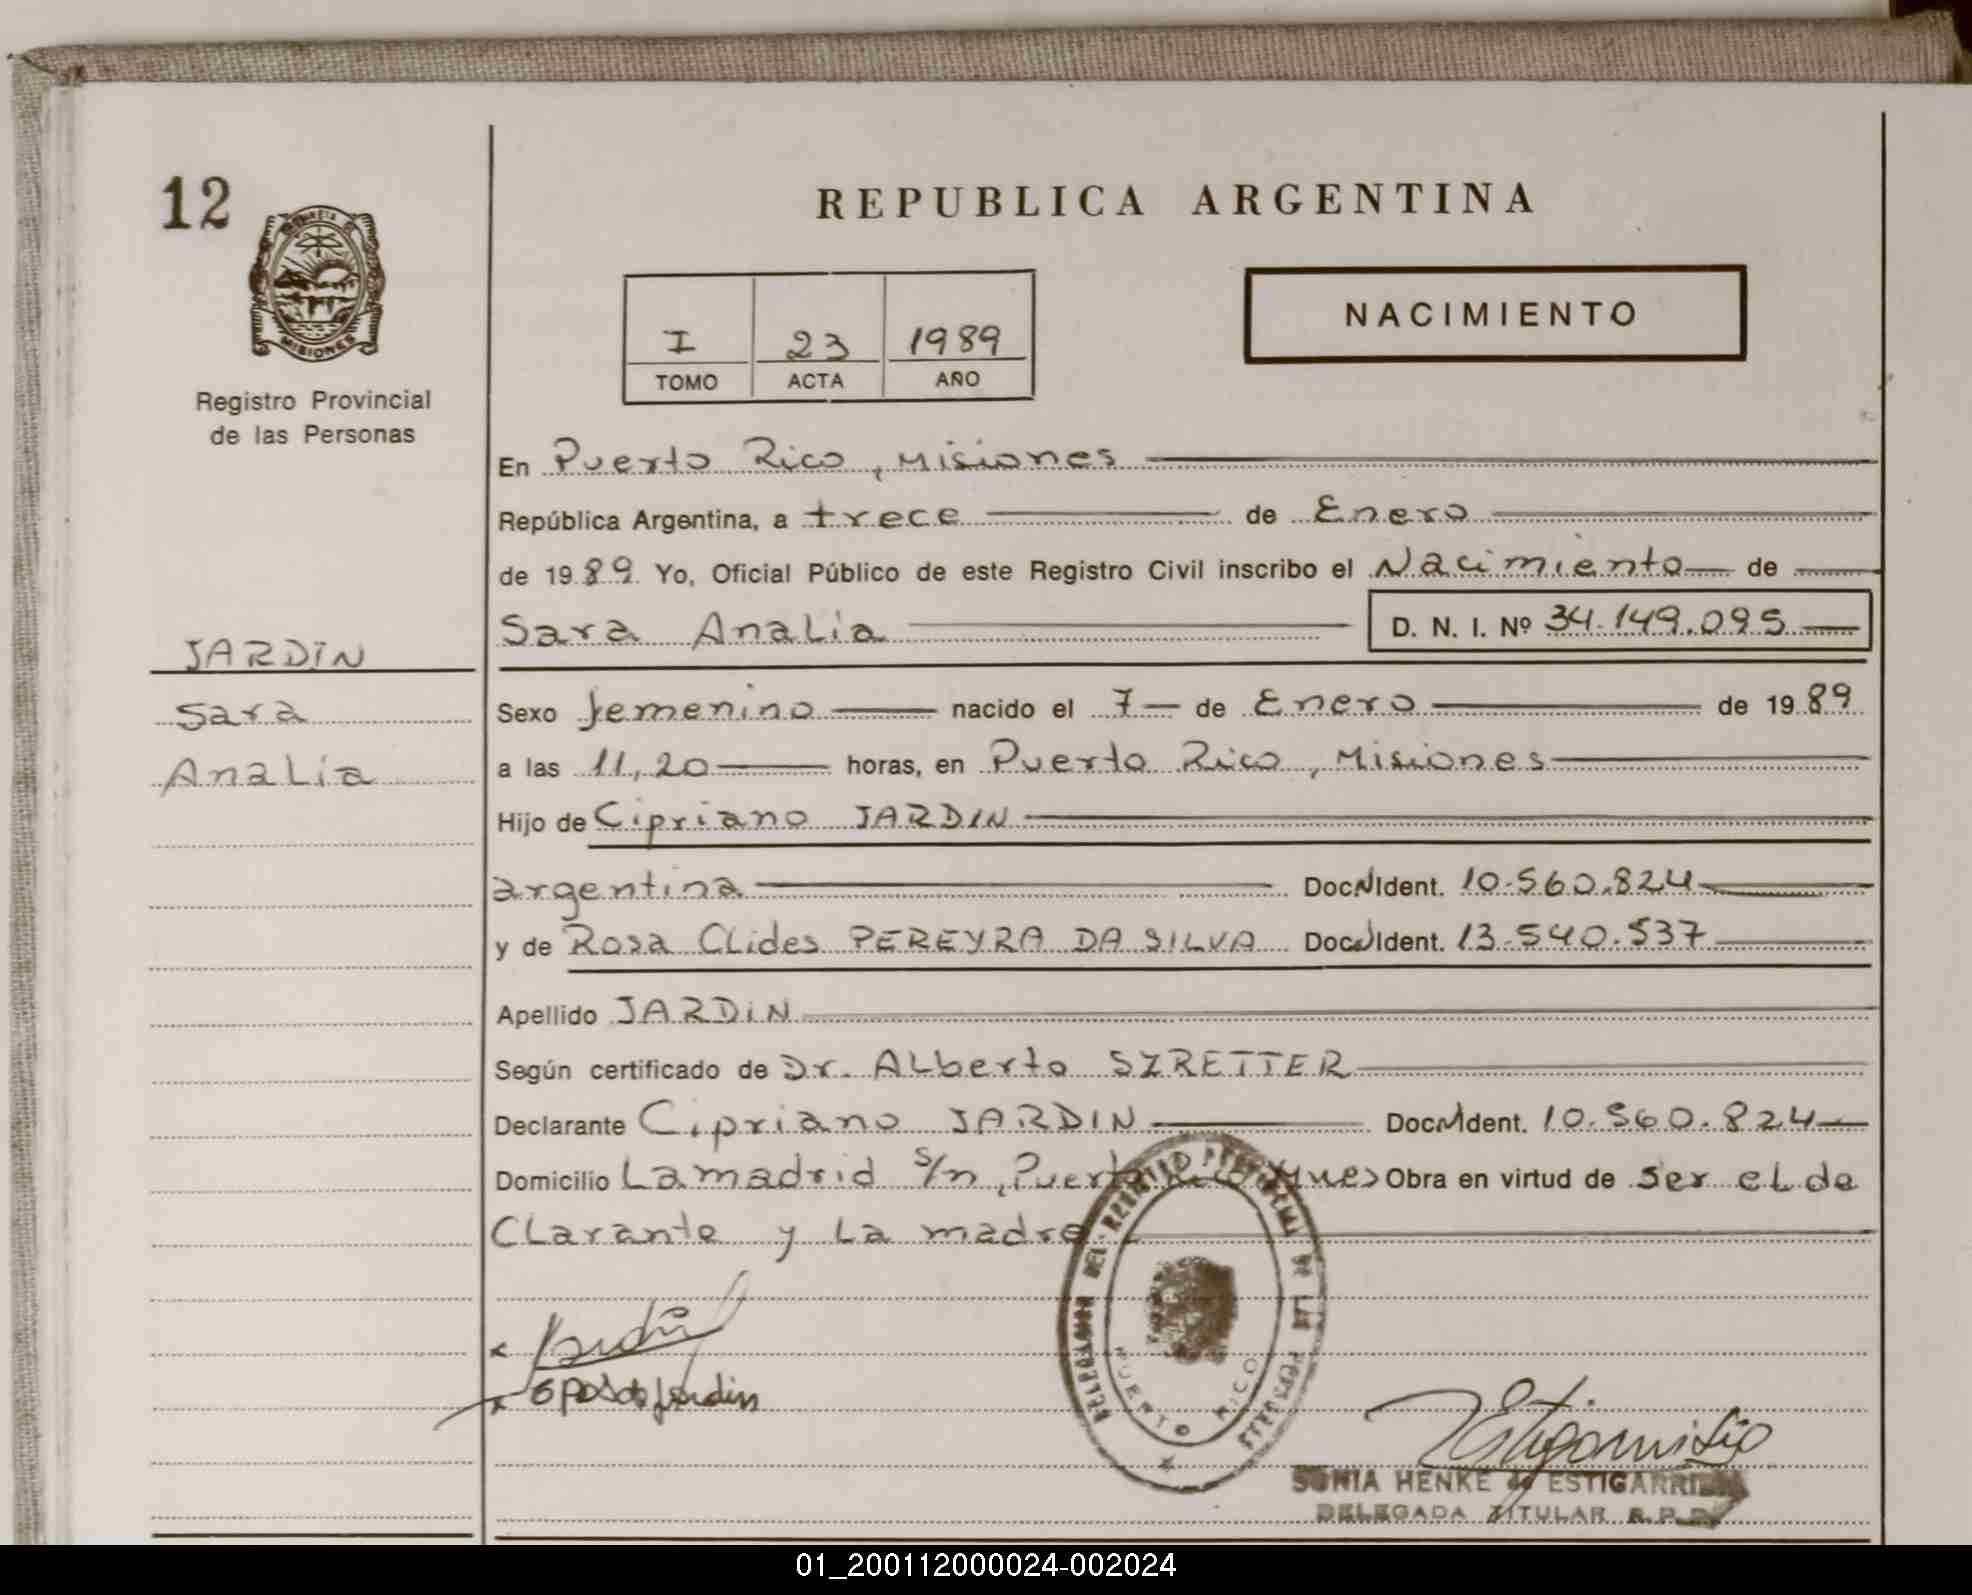 12
REPUBLICA ARGENTINA
MISIONES
Registro Provincial
de las Personas
I 23 1989
TOMO ACTA AÑO
NACIMIENTO
En Puerto Rico, Misiones
República Argentina, a trece de Enero
de 1989. Yo, Oficial Público de este Registro Civil inscribo el Nacimiento de
Sara Analía D. N. I. Nº 34.149.095
JARDIN
Sara
Analía
Sexo femenino nacido el 7 de Enero de 1989
a las 11,20 horas, en Puerto Rico, Misiones
Hijo de Cipriano JARDIN
argentina Doc. Ident. 10.560.824
y de Rosa Clides PEREYRA DA SILVA Doc. Ident. 13.540.537
Apellido JARDIN
Según certificado de Dr. Alberto SZRETTER
Declarante Cipriano JARDIN Doc. Ident. 10.560.824
Domicilio Lamadrid s/n, Puerto Rico Mnes Obra en virtud de ser el de
clarante y la madre
DELEGACION DEL REGISTRO PROVINCIAL DE LAS PERSONAS
PUERTO RICO
SONIA HENKE de ESTIGARRIBIA
DELEGADA TITULAR R. P. P.
01_200112000024-002024